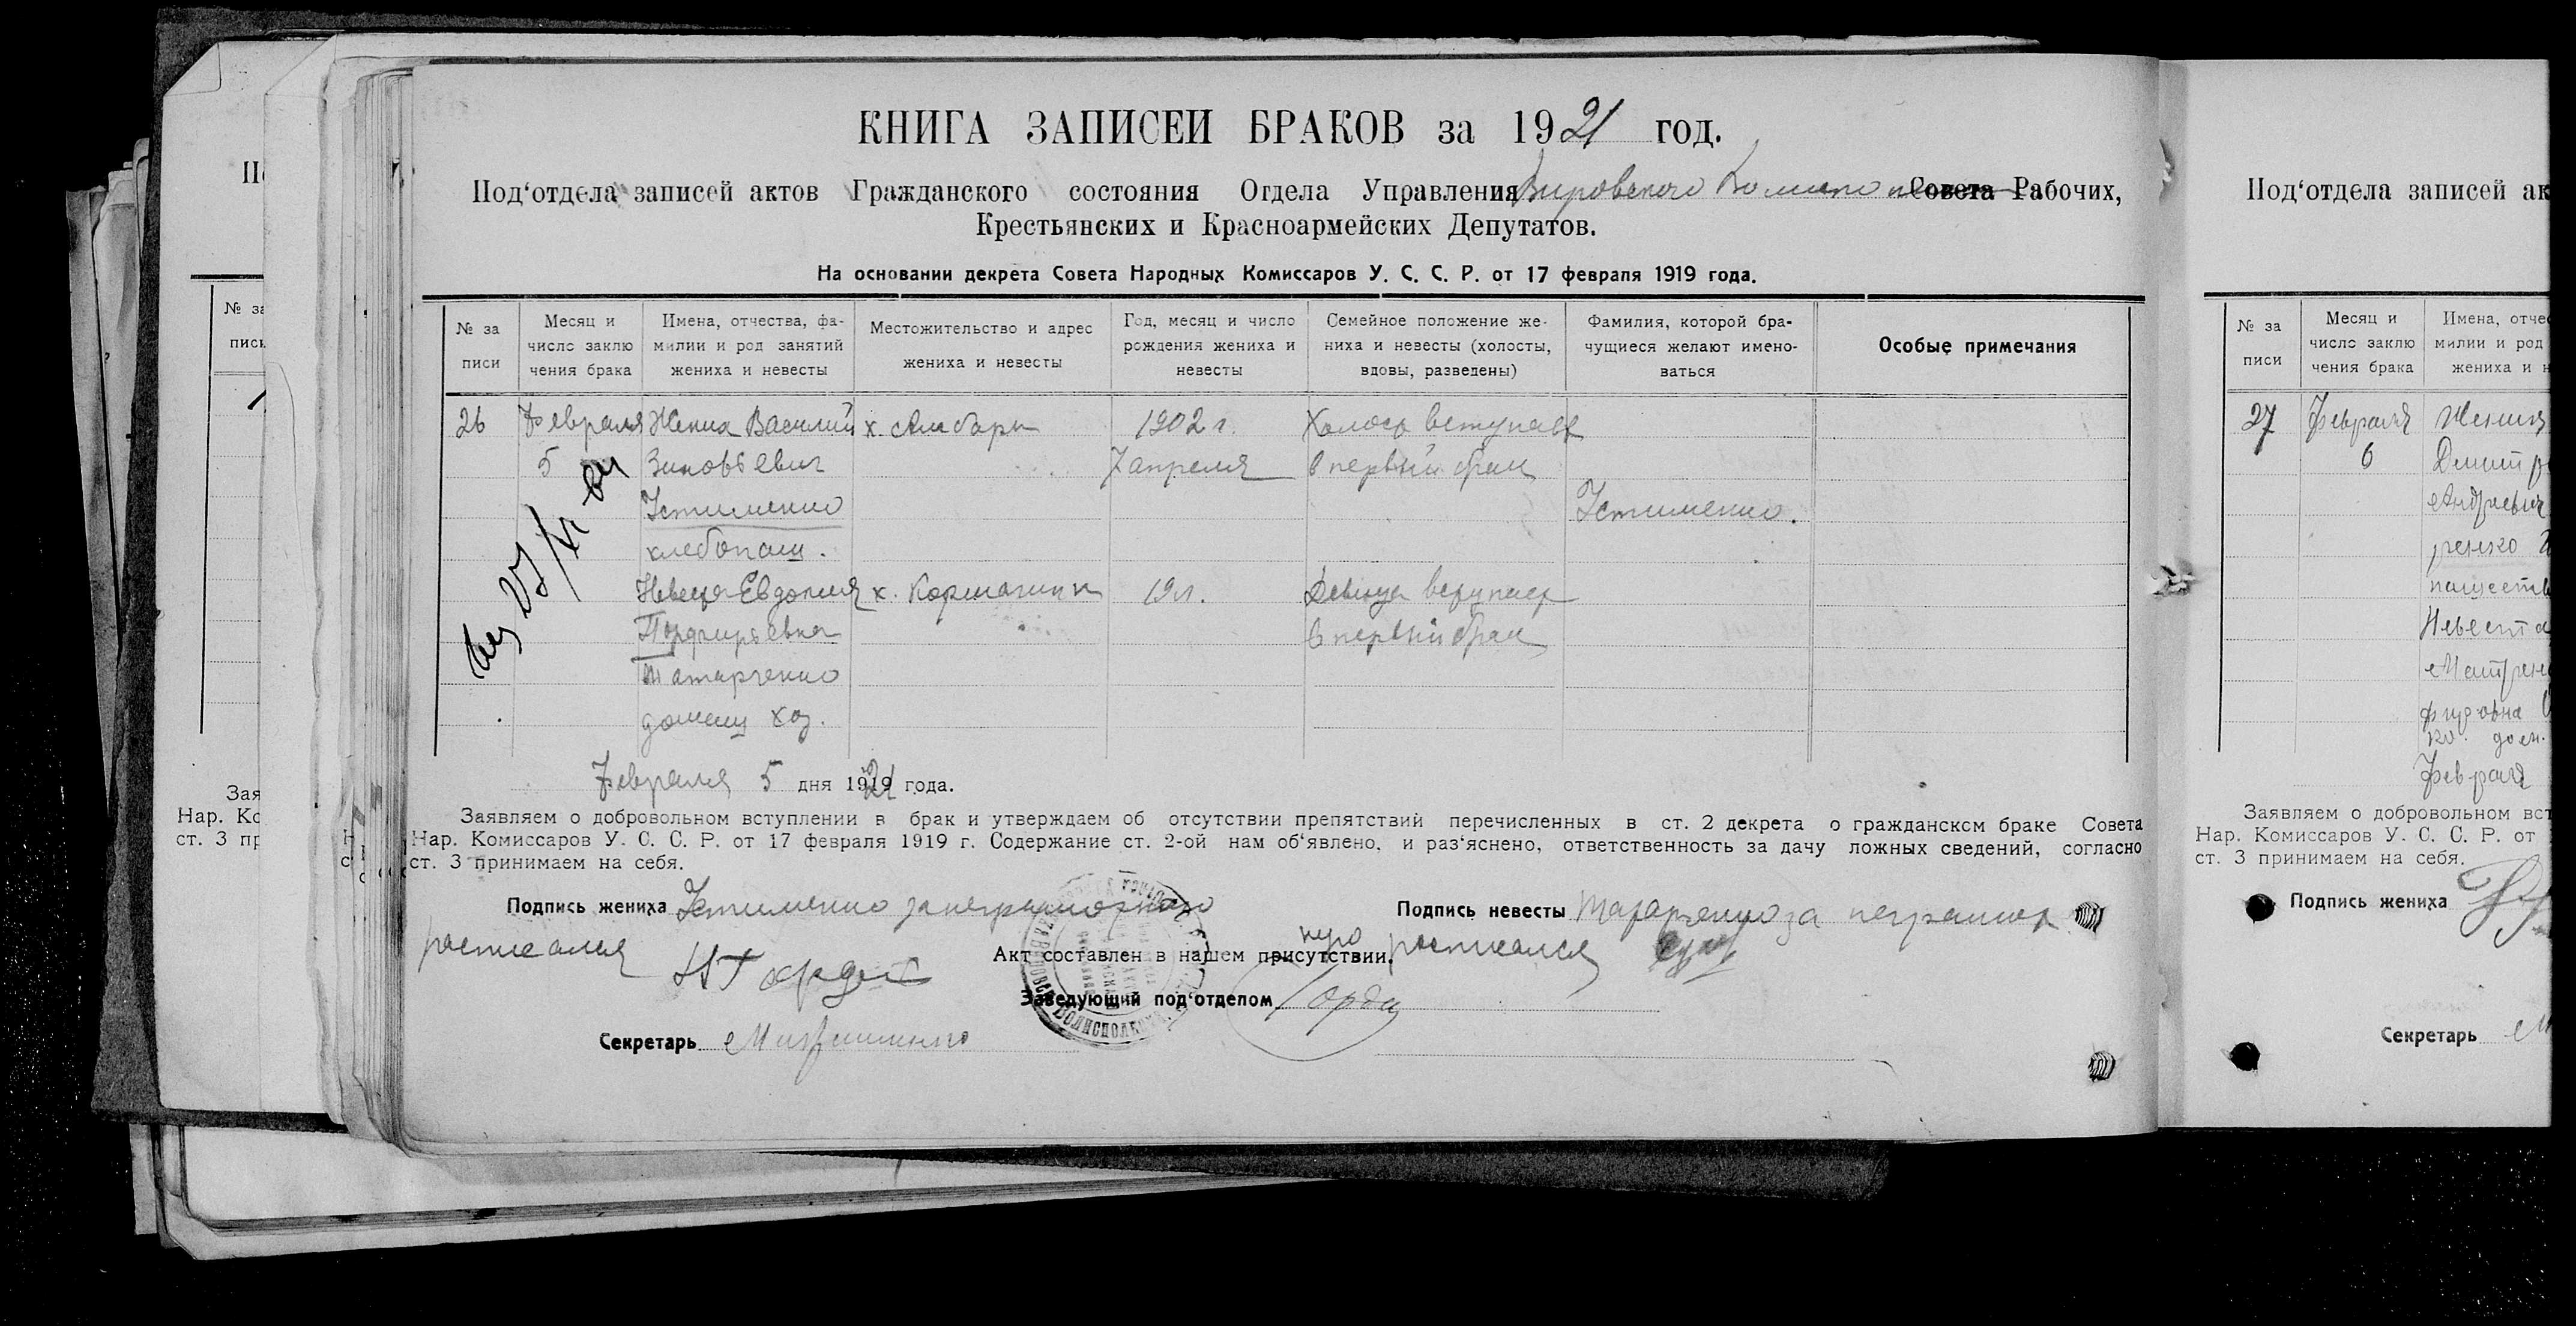 КНИГА ЗАПИСЕЙ БРАКОВ за 1921 год.
Под‘отдела записей актов Гражданского состояния Отдела Управления Вировского Совета Рабочих,
Крестьянских и Красноармейских Депутатов.
На основании декрета Совета Народных Комиссаров У. С. С. Р. от 17 февраля 1919 года.
№ за писи
Месяц и число заклю чения брака
Имена, отчества, фа- милии и род занятий жениха и невесты
Местожительство и адрес жениха и невесты
Год, месяц и число рождения жениха и невесты
Семейное положение же- ниха и невесты (холосты, вдовы, разведены)
Фамилия, которой бра- чущиеся желают имено- ваться
Особые примечания
26 Февраля Жених Василий х. Амбары 1902 г. Холост вступает
5 Зиновьевич 7 апреля в первый брак
Устименко Устименко.
хлебопаш.
Невеста Евдокия х. Кормагини 19 л. Девица вступает
Порфирьевна в первый брак
Татарченко
домаш хоз.
Февраля 5 дня 1921 года.
Заявляем о добровольном вступлении в брак и утверждаем об отсутствии препятствий перечисленных в ст. 2 декрета о гражданском браке Совета
Нар. Комиссаров У. С. С. Р. от 17 февраля 1919 г. Содержание ст. 2-ой нам об‘явлено, и раз‘яснено, ответственность за дачу ложных сведений, согласно
ст. 3 принимаем на себя.
Подпись жениха Устименко за неграмотного
Подпись невесты Татарченко за неграмот
расписался
Н Гордей
Акт составлен в нашем присутствии.
ную расписался
Заведующий под‘отделом Горди
Секретарь
Под‘отдела записей ак
№ за писи
Месяц и число заклю чения брака
Имена, отчес милии и род жениха и н
27 Февраля Жених
6 Дмитр
Андреевич
ренко
пашеств
Невеста
Матрена
Февраля
Заявляем о добровольном вст
Нар. Комиссаров У. С. С. Р. от
ст. 3 принимаем на себя.
Подпись жениха
Секретарь
№ за
писи
Зая
Нар. Ко
ст. 3 пр